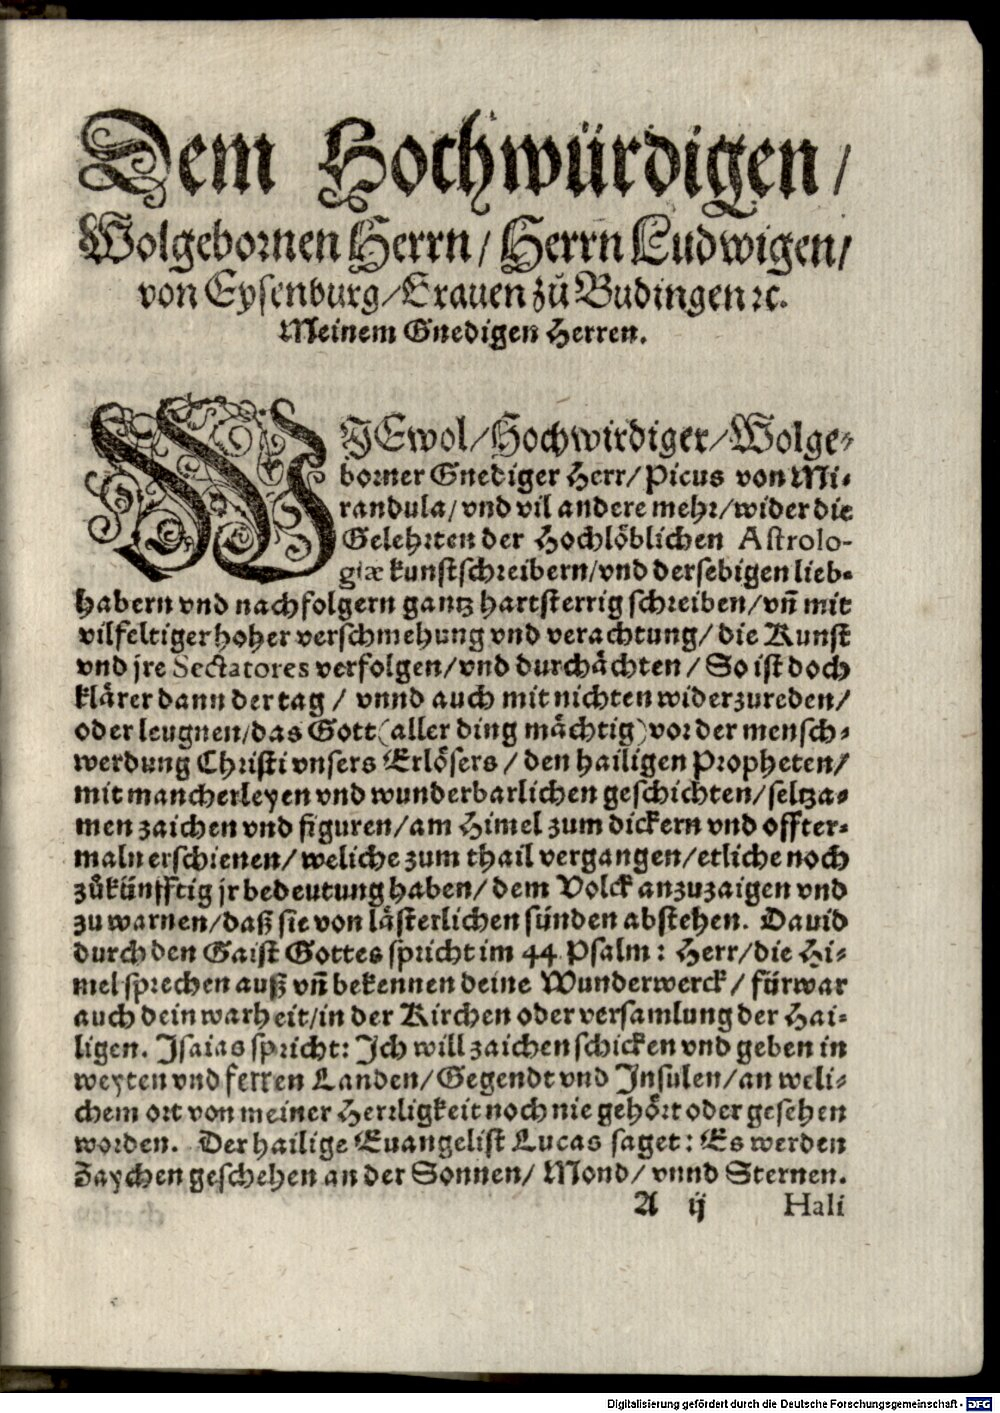 Dem Hochwürdigen/
Wolgebornen Herrn/ Herrn Ludwigen/
von Eysenburg/ Grauen zů Budingen ꝛc.
Meinem Gnedigen Herren.
WJEwol/ Hochwirdiger/ Wolge-
borner Gnediger Herr/ Picus von Mi-
randula/ vnd vil andere mehr/ wider die
Gelehrten der Hochlöblichen Astrolo-
giæ kunstschreibern/ vnd dersebigen lieb-
habern vnd nachfolgern gantz hartsterrig schreiben/ vñ mit
vilfeltiger hoher verschmehung vnd verachtung/ die Kunst
vnd jre Sectatores verfolgen/ vnd durchächten/ So ist doch
klärer dann der tag/ vnnd auch mit nichten widerzureden/
oder leugnen/ das Gott (aller ding mächtig) vor der mensch-
werdung Christi vnsers Erlösers/ den hailigen Propheten/
mit mancherleyen vnd wunderbarlichen geschichten/ seltza-
men zaichen vnd figuren/ am Himel zum dickern vnd offter-
maln erschienen/ weliche zum thail vergangen/ etliche noch
zůkünfftig jr bedeutung haben/ dem Volck anzuzaigen vnd
zu warnen/ daß sie von lästerlichen sünden abstehen. Dauid
durch den Gaist Gottes spricht im 44. Psalm: Herr/ die Hi-
mel sprechen auß vñ bekennen deine Wunderwerck/ fürwar
auch dein warheit/ in der Kirchen oder versamlung der Hai-
ligen. Jsaias spricht: Jch will zaichen schicken vnd geben in
weyten vnd ferren Landen/ Gegendt vnd Jnsulen/ an weli-
chem ort von meiner Herrligkeit noch nie gehört oder gesehen
worden. Der hailige Euangelist Lucas saget: Es werden
Zaychen geschehen an der Sonnen/ Mond/ vnnd Sternen.
A ij Hali
Digitalisierung gefördert durch die Deutsche Forschungsgemeinschaft - DFG